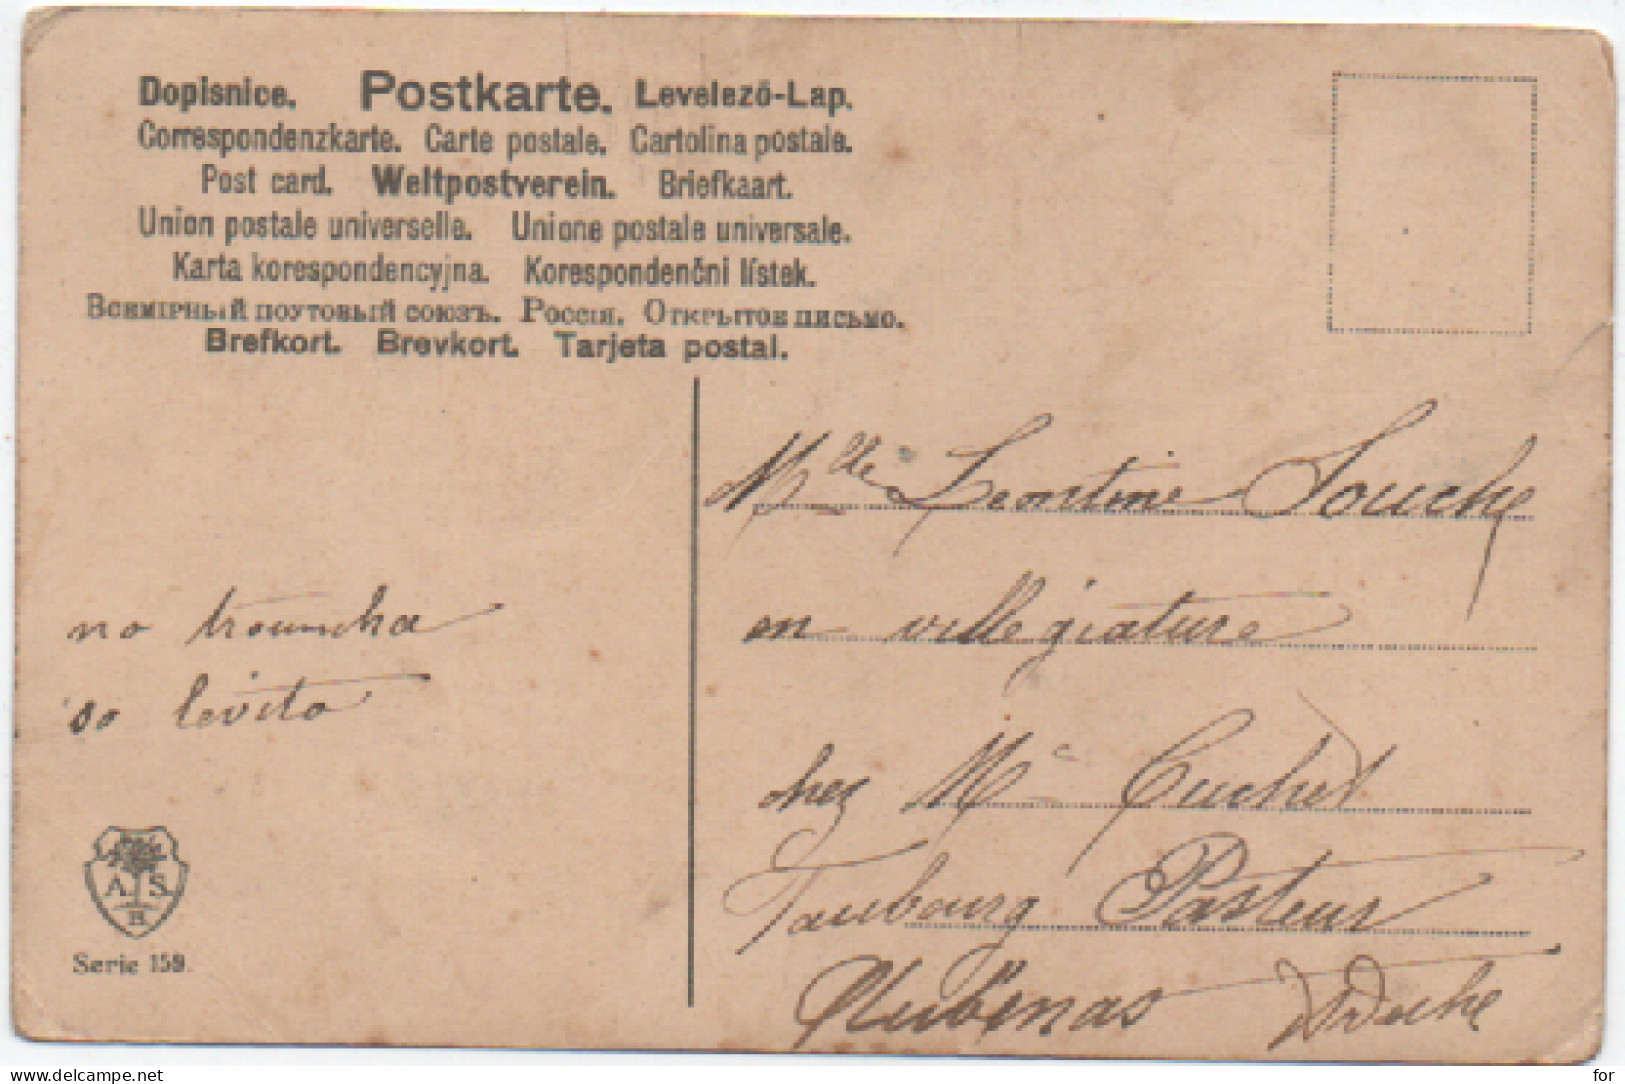 Dopisnice. Postkarte. Levelező-Lap.
Correspondenzkarte. Carte postale. Cartolina postale.
Post card. Weltpostverein. Briefkaart.
Union postale universelle. Unione postale universale.
Karta korespondencyjna. Korespondenční lístek.
Всемірный поутовый союзъ. Россія. Открытое письмо.
Brefkort. Brevkort. Tarjeta postal.
Mlle Leontine Souche
en villegiature
chez Me Cuchet
Faubourg Pasteur
Aubenas Ardèche
no trouncha
so levito
A. S.
B
Serie 159.
www.delcampe.net
for